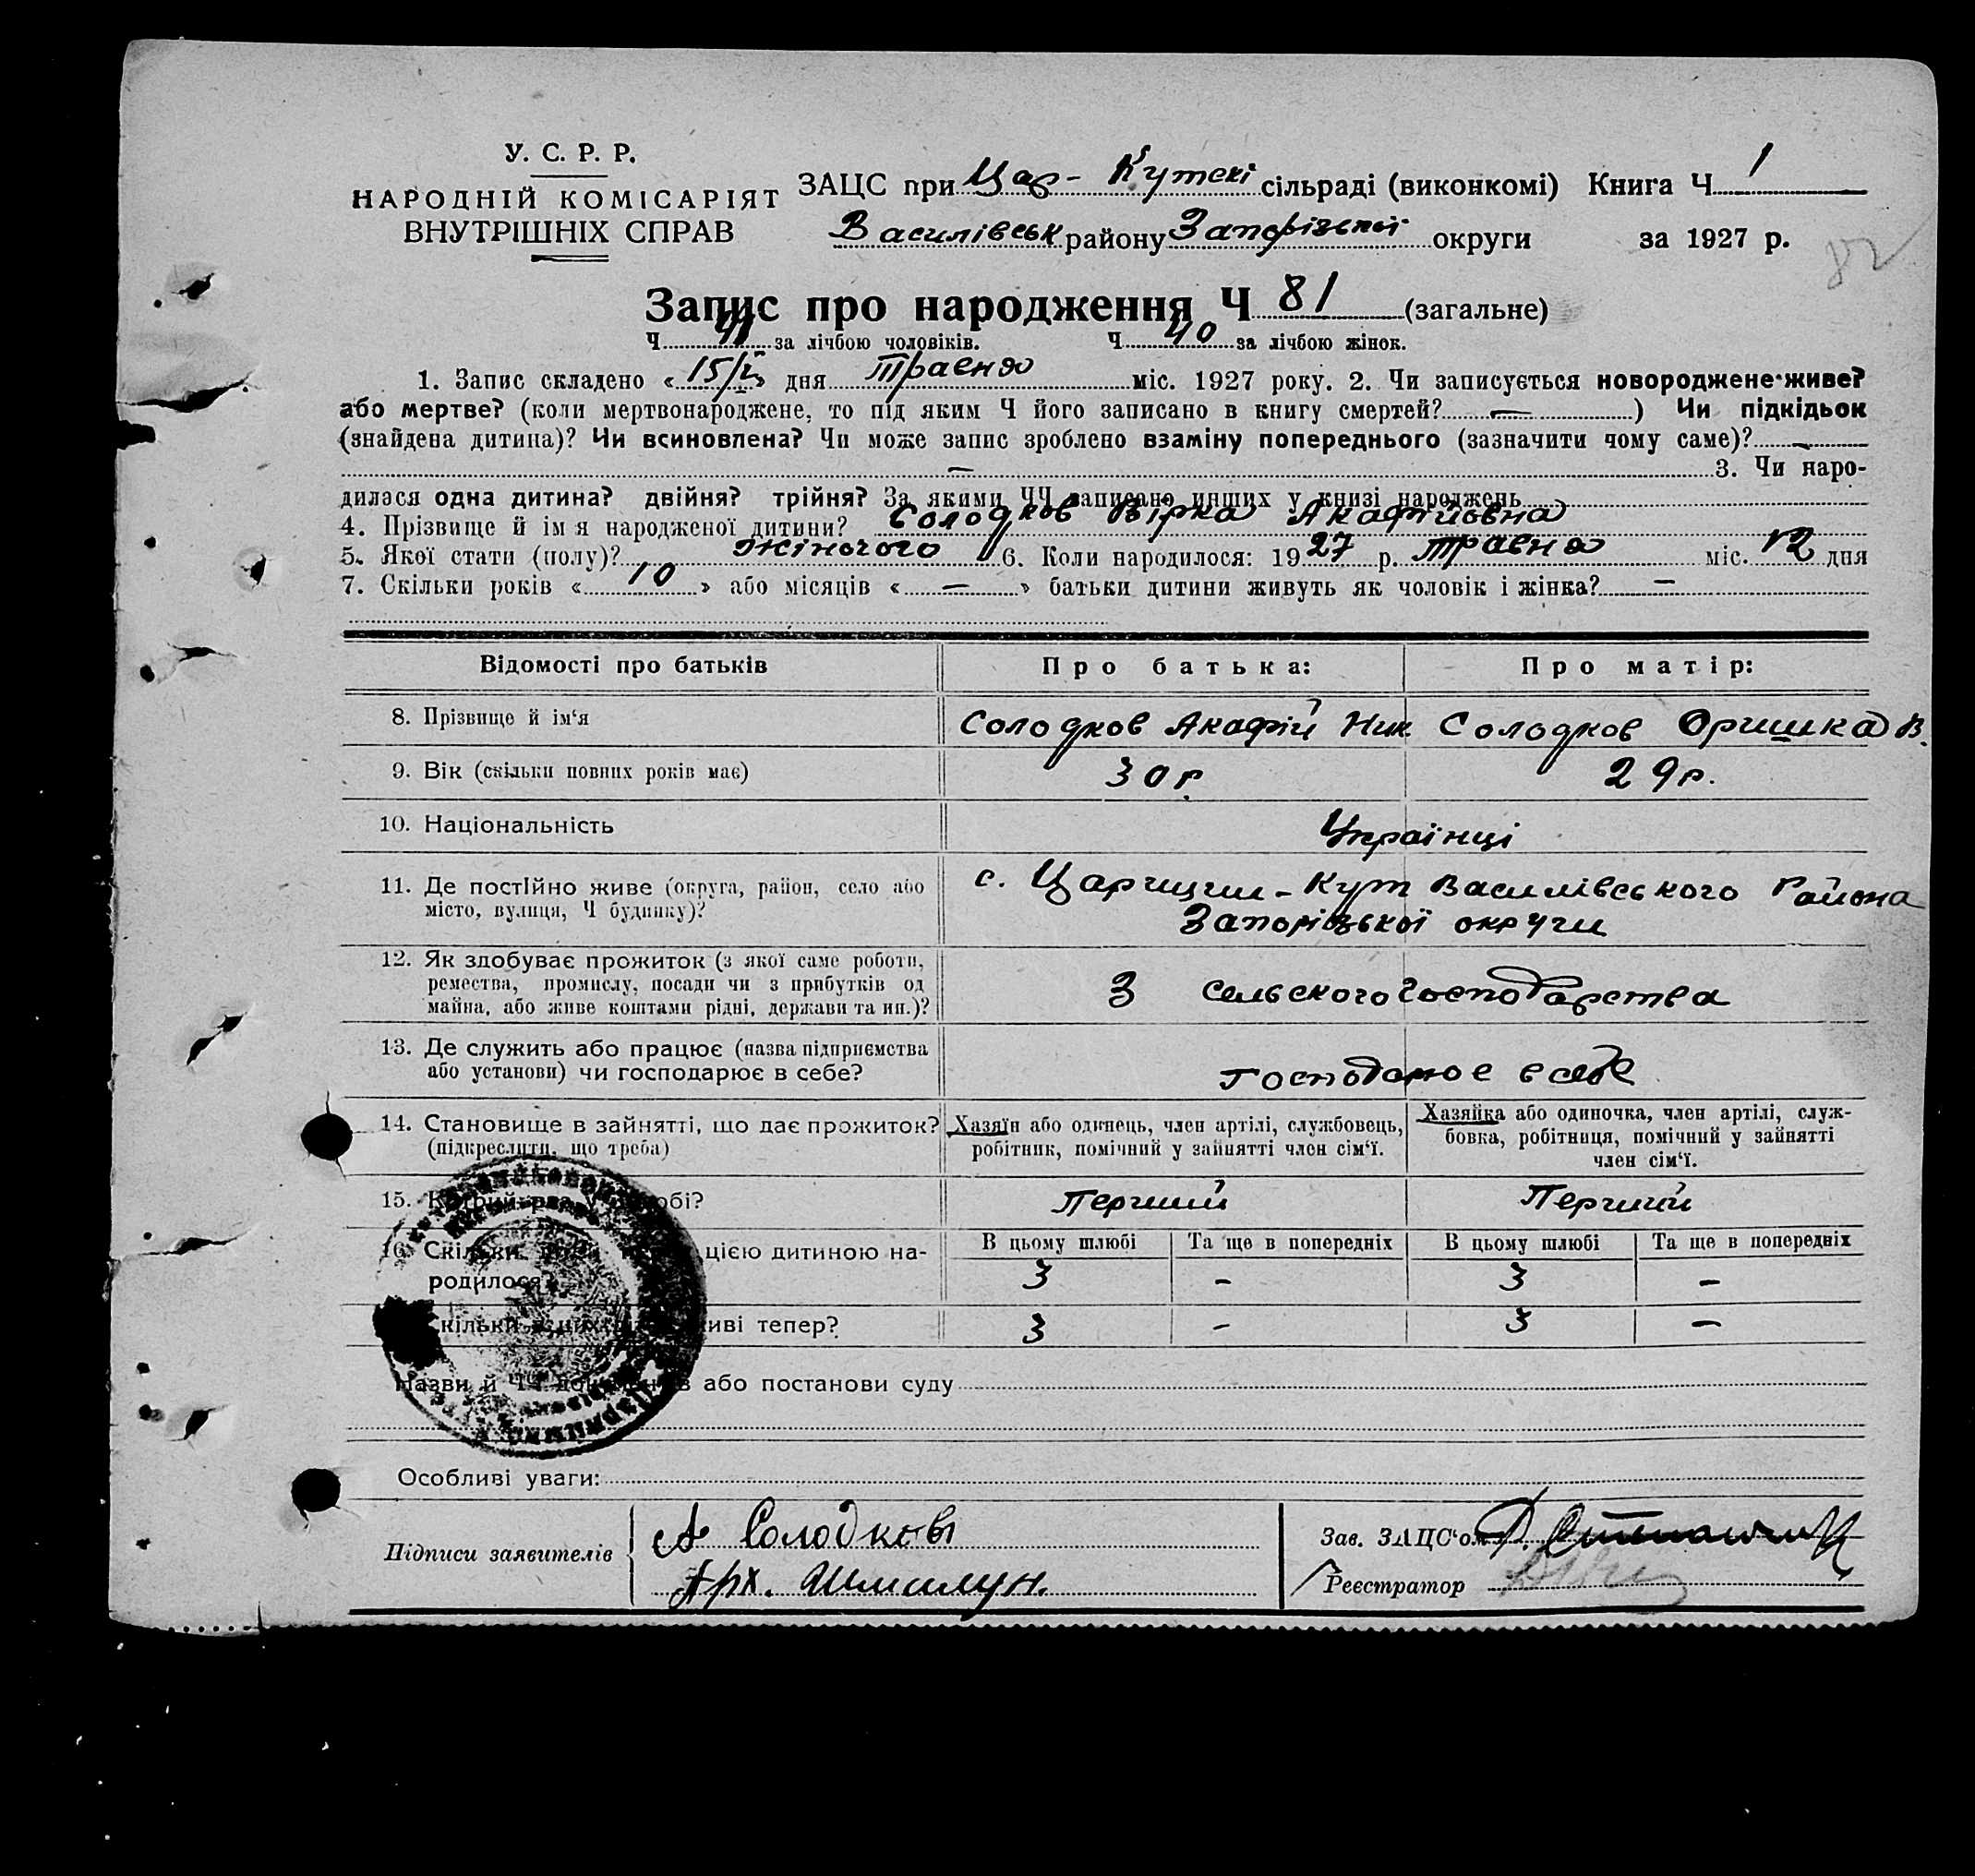 У. С. Р. Р.
НАРОДНІЙ КОМІСАРІЯТ
ВНУТРІШНІХ СПРАВ
ЗАЦС при Цар-Кутскі сільраді (виконкомі) Книга Ч 1
Василівськ району Запорізської округи за 1927 р.
82
Запис про народження Ч 81 (загальне)
Ч 41 за лічбою чоловіків. Ч 40 за лічбою жінок.
1. Запис складено « 15/V » дня Травня міс. 1927 року. 2. Чи записується новороджене живе?
або мертве? (коли мертвонароджене, то під яким Ч його записано в книгу смертей? — ) Чи підкідьок
(знайдена дитина)? Чи всиновлена? Чи може запис зроблено взаміну попереднього (зазначити чому саме)? —
— 3. Чи наро-
дилася одна дитина? двійня? трійня? За якими ЧЧ записано инших у книзі народжень
4. Прізвище й ім'я народженої дитини? Солодков Вірка Акафійовна
5. Якої стати (полу)? жіночого 6. Коли народилося: 1927 р. травня міс. 12 дня
7. Скільки років « 10 » або місяців « — » батьки дитини живуть як чоловік і жінка? —
Відомості про батьків Про батька: Про матір:
8. Прізвище й ім'я Солодков Акафій Ник. Солодков Оришка В.
9. Вік (скільки повних років має) 30 р. 29 р.
10. Національність Українці
11. Де постійно живе (округа, район, село або
місто, вулиця, Ч будинку)?
с. Царицин-Кут Василівського Района
Запорізької округи
12. Як здобуває прожиток (з якої саме роботи,
ремества, промислу, посади чи з прибутків од
майна, або живе коштами рідні, держави та ин.)?
З сельского господарства
13. Де служить або працює (назва підприємства
або установи) чи господарює в себе?
господарює в себе
14. Становище в зайнятті, що дає прожиток?
(підкреслити, що треба)
Хазяїн або одинець, член артілі, службовець,
робітник, помічний у зайнятті член сім'ї.
Хазяйка або одиночка, член артілі, служ-
бовка, робітниця, помічний у зайнятті
член сім'ї.
15. Котрий раз у шлюбі? Перший Перший
16. Скільки цією дитиною на-
родилося?
В цьому шлюбі Та ще в попередніх В цьому шлюбі Та ще в попередніх
3 – 3 –
живі тепер? 3 – 3 –
Назви й ЧЧ документів або постанови суду
Особливі уваги:
Підписи заявителів
А Солодков
Арх. Шмигун.
Зав. ЗАЦС'ом
Реєстратор